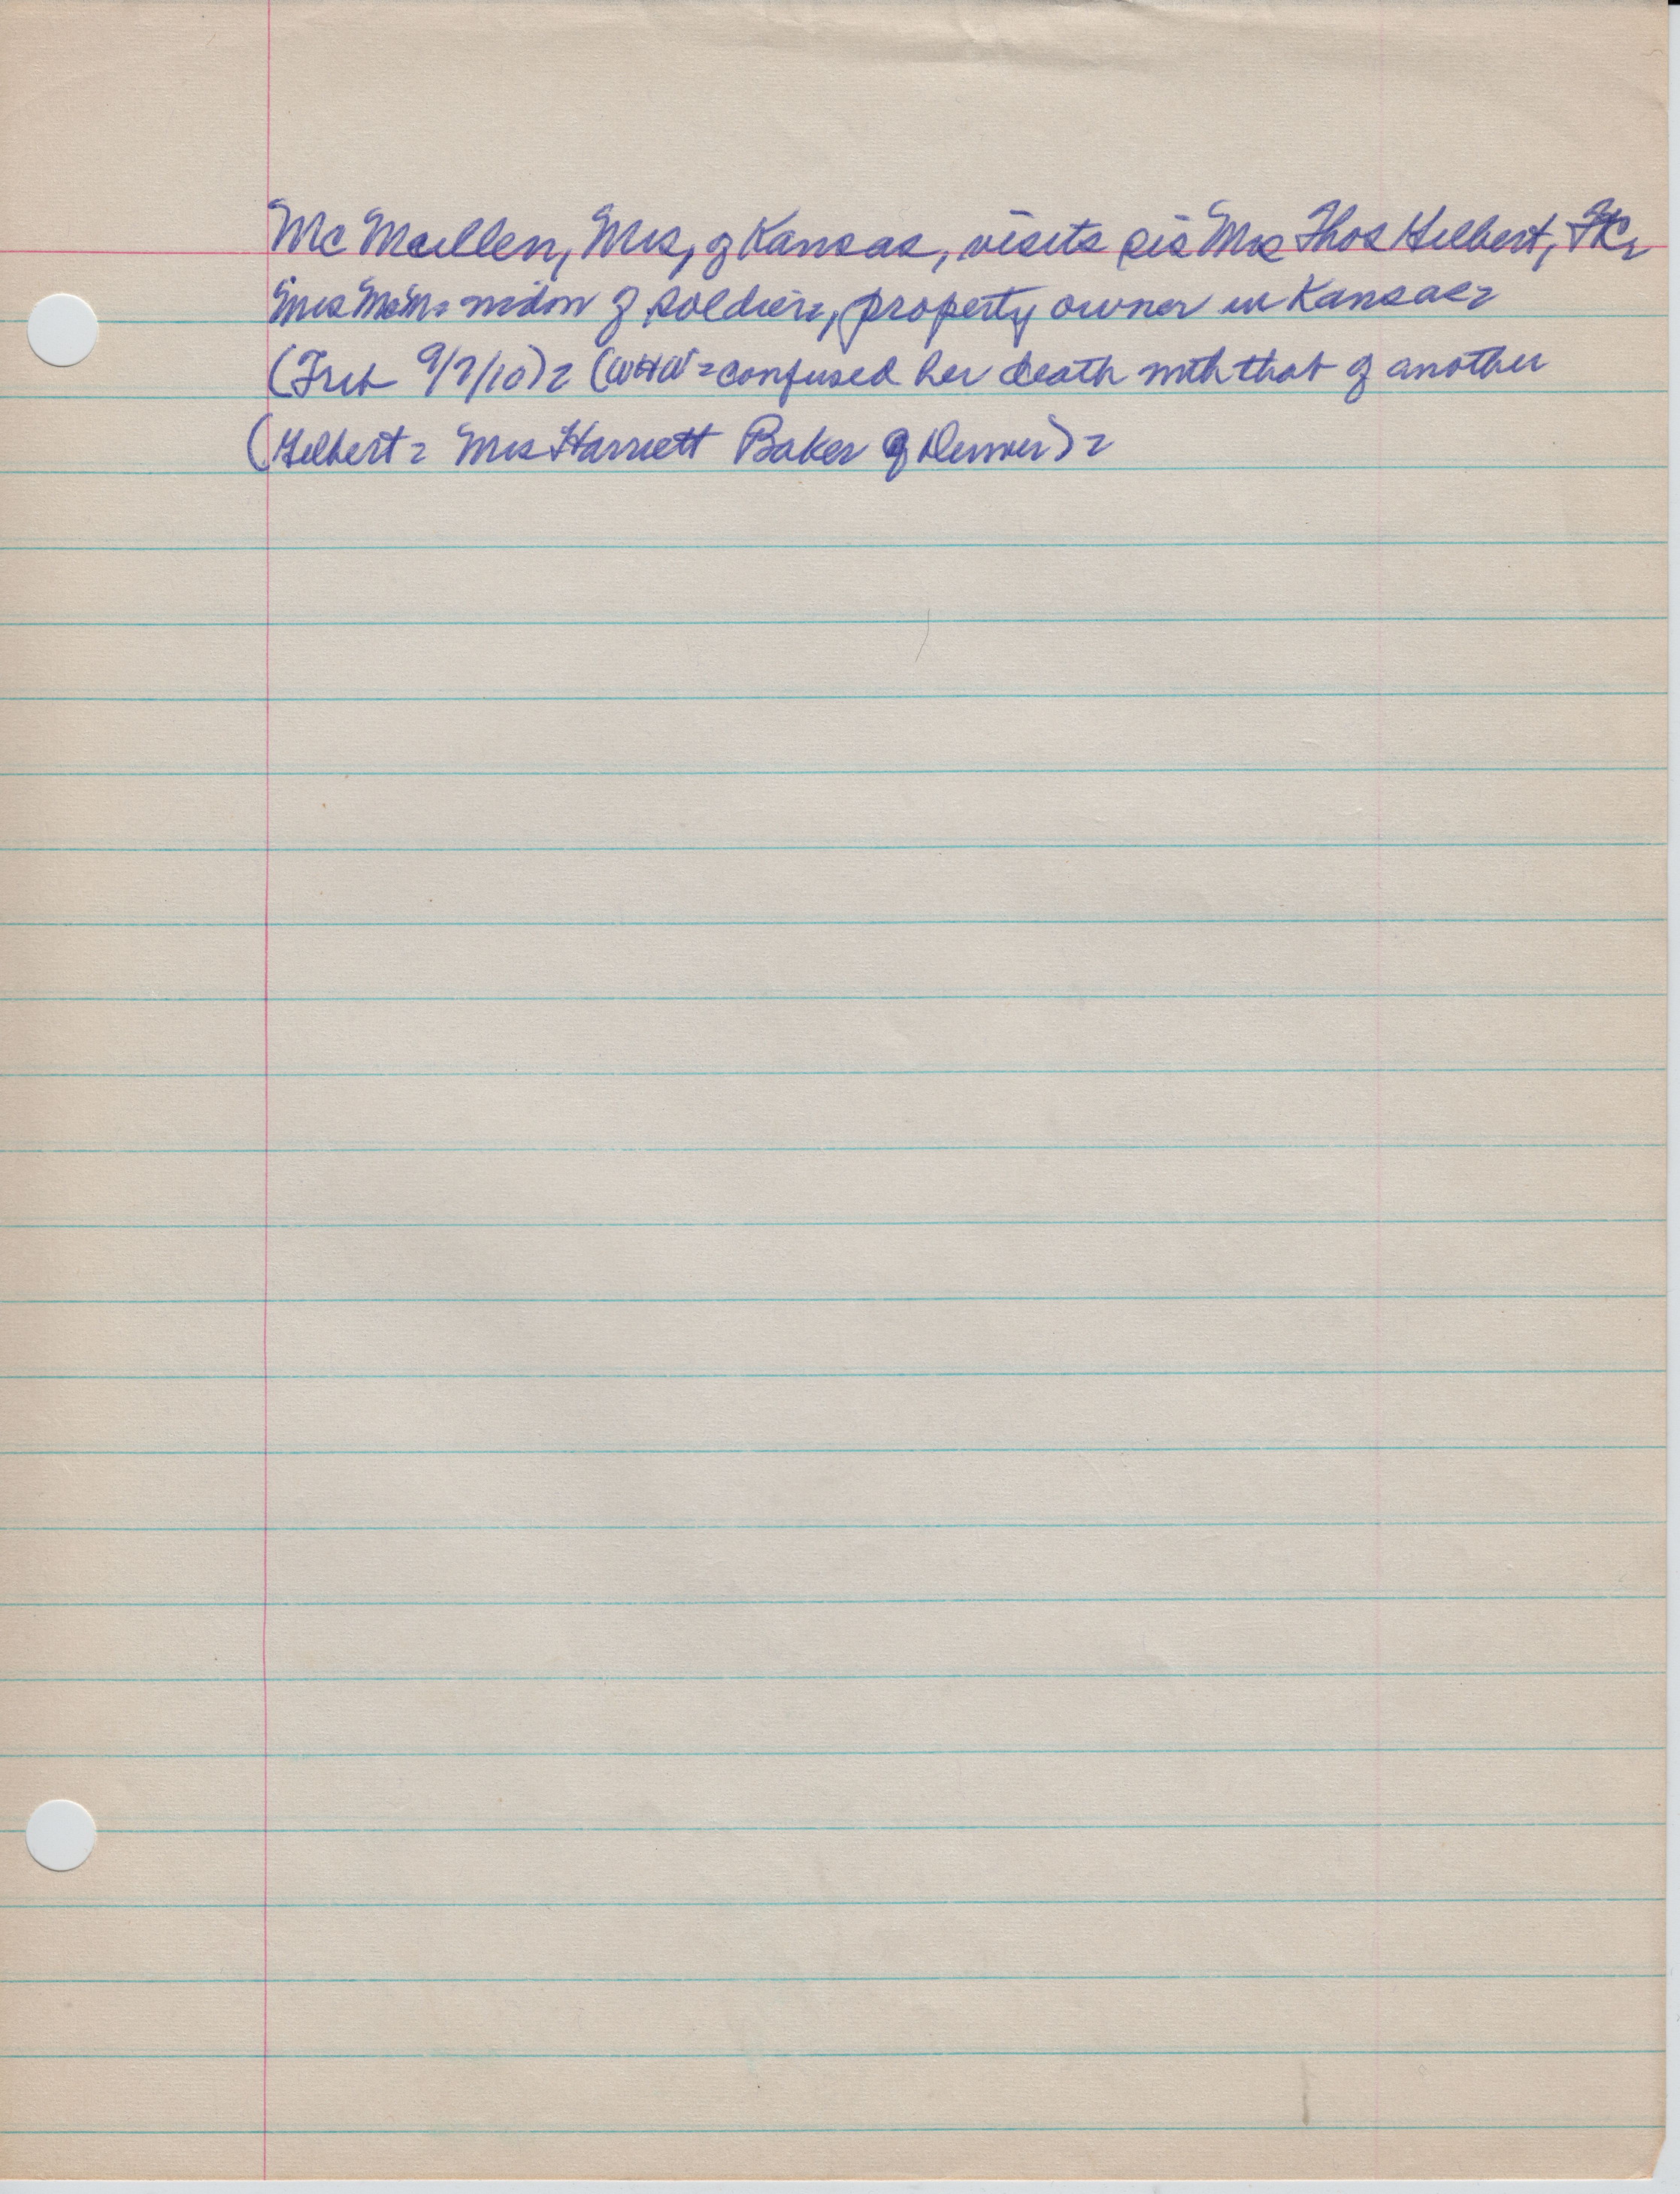 McMullen, Mrs, of Kansas, visits sis Mrs Thos Gilbert, FtC.
Mrs McM. widow of soldier, property owner in Kansas.
(Trib 9/7/10). (WHW = confused her death with that of another
(Gilbert = Mrs Harriett Baker of Denver).